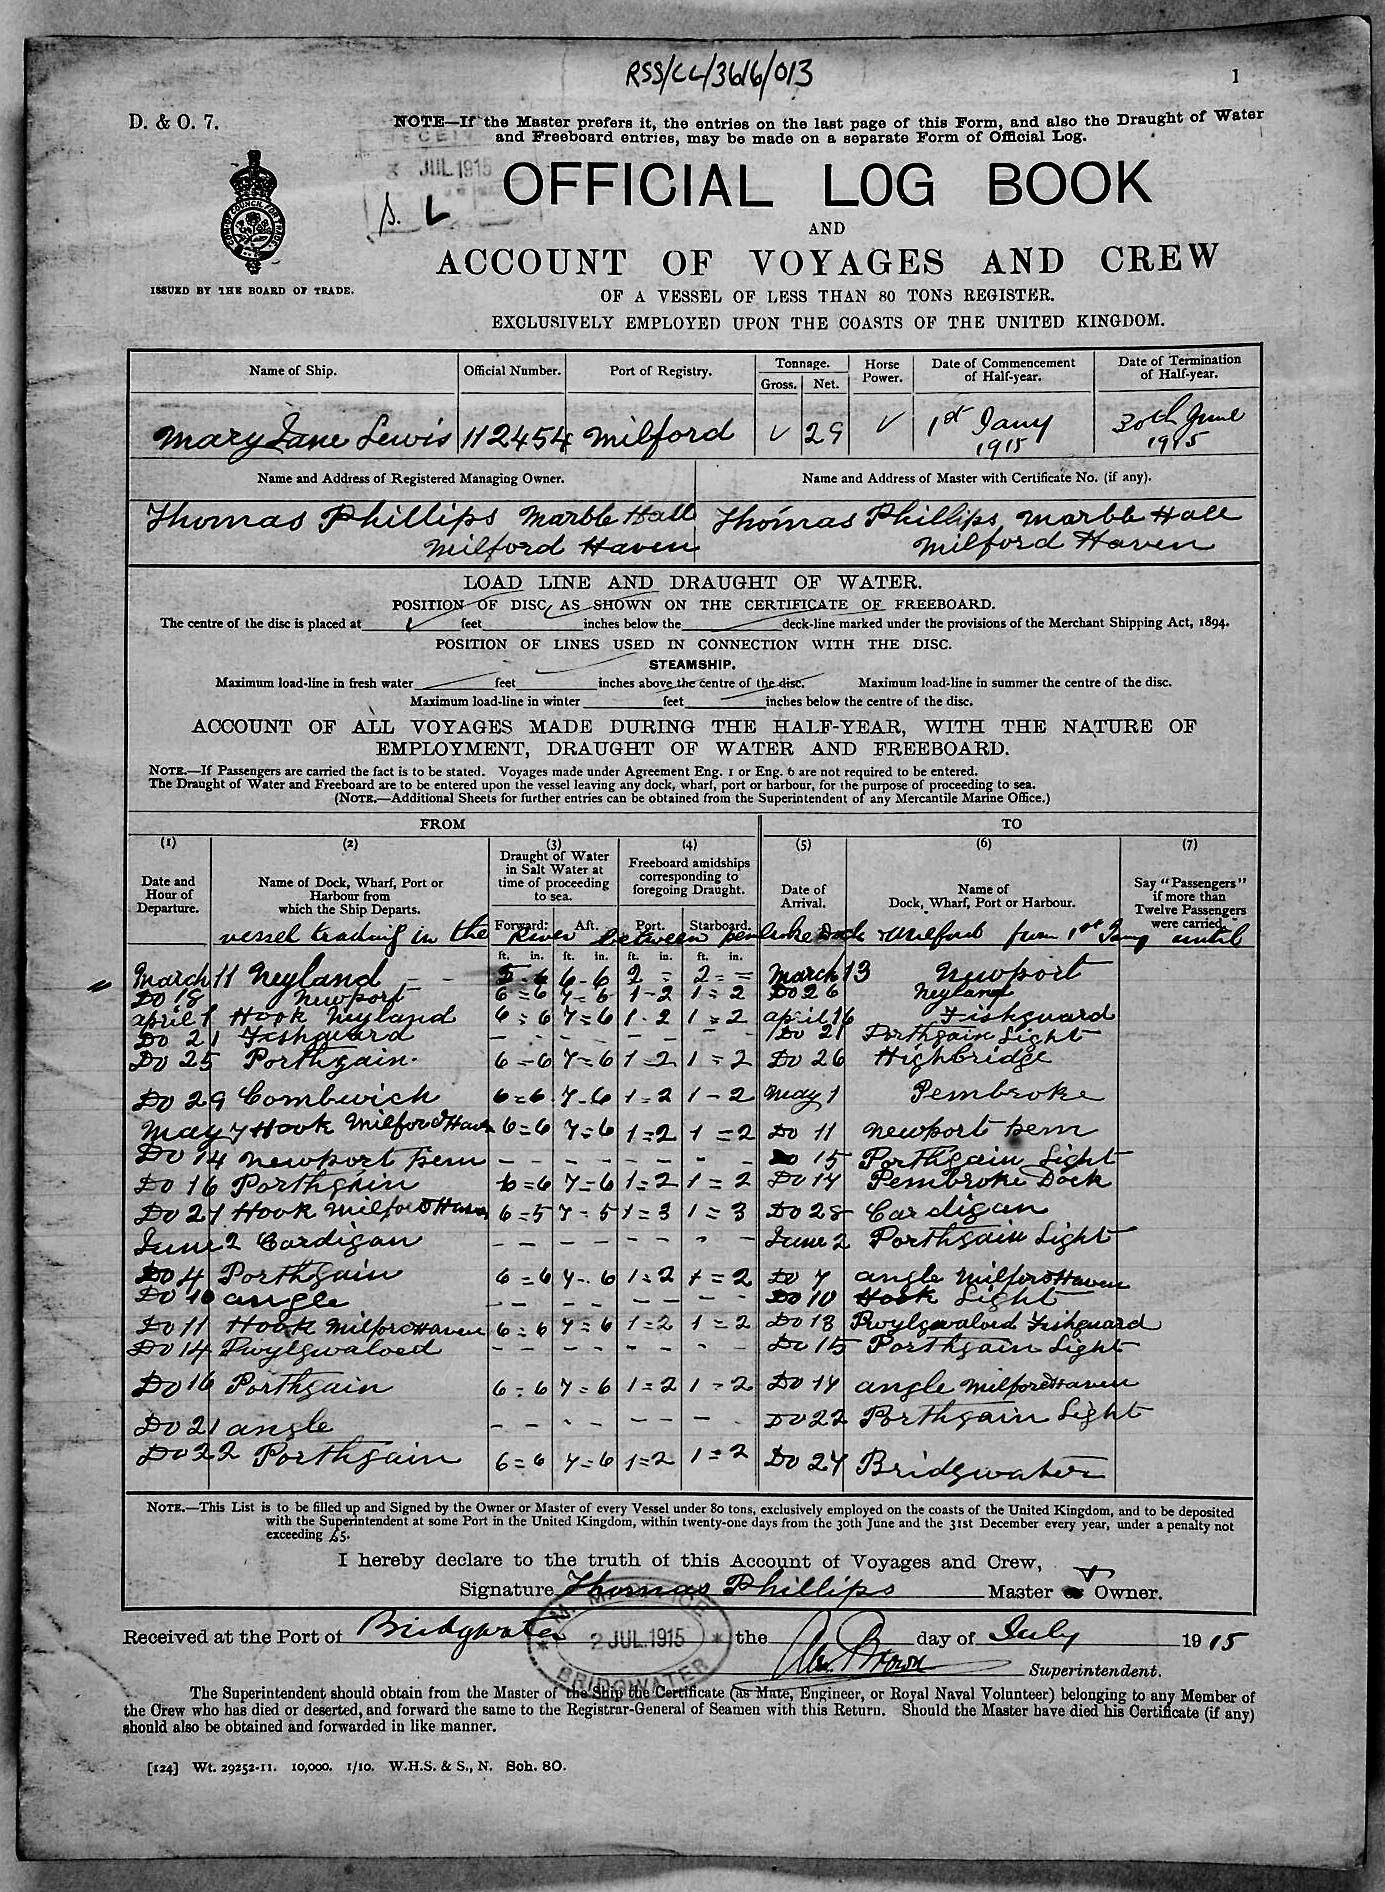 RSS/CL/3616/013
1
D. & O. 7.
NOTE—If the Master prefers it, the entries on the last page of this Form, and also the Draught of Water
and Freeboard entries, may be made on a separate Form of Official Log.
JUL 1915
OFFICIAL LOG BOOK
AND
ACCOUNT OF VOYAGES AND CREW
ISSUED BY THE BOARD OF TRADE.
OF A VESSEL OF LESS THAN 80 TONS REGISTER.
EXCLUSIVELY EMPLOYED UPON THE COASTS OF THE UNITED KINGDOM.
Name of Ship. Official Number. Port of Registry. Tonnage. Gross. Net. Horse Power. Date of Commencement of Half-year. Date of Termination of Half-year.
Mary Jane Lewis 112454 Milford 29 1st Jany 1915 30th June 1915
Name and Address of Registered Managing Owner. Name and Address of Master with Certificate No. (if any).
Thomas Phillips Marble Hall Thomas Phillips Marble Hall
Milford Haven Milford Haven
LOAD LINE AND DRAUGHT OF WATER.
POSITION OF DISC, AS SHOWN ON THE CERTIFICATE OF FREEBOARD.
The centre of the disc is placed at feet inches below the deck-line marked under the provisions of the Merchant Shipping Act, 1894.
POSITION OF LINES USED IN CONNECTION WITH THE DISC.
STEAMSHIP.
Maximum load-line in fresh water feet inches above the centre of the disc. Maximum load-line in summer the centre of the disc.
Maximum load-line in winter feet inches below the centre of the disc.
ACCOUNT OF ALL VOYAGES MADE DURING THE HALF-YEAR, WITH THE NATURE OF
EMPLOYMENT, DRAUGHT OF WATER AND FREEBOARD.
NOTE.—If Passengers are carried the fact is to be stated. Voyages made under Agreement Eng. 1 or Eng. 6 are not required to be entered.
The Draught of Water and Freeboard are to be entered upon the vessel leaving any dock, wharf, port or harbour, for the purpose of proceeding to sea.
(NOTE.—Additional Sheets for further entries can be obtained from the Superintendent of any Mercantile Marine Office.)
FROM TO
(1) (2) (3) (4) (5) (6) (7)
Date and Hour of Departure. Name of Dock, Wharf, Port or Harbour from which the Ship Departs. Draught of Water in Salt Water at time of proceeding to sea. Freeboard amidships corresponding to foregoing Draught. Date of Arrival. Name of Dock, Wharf, Port or Harbour. Say "Passengers" if more than Twelve Passengers were carried.
Forward. Aft. Port. Starboard.
vessel trading in the River between Pembroke Dock & Milford from 1st Jany until
ft. in. ft. in. ft. in. ft. in.
March 11 Neyland 5-6 6-6 2 = 2 = = March 13 Newport
Do 18 Newport 6=6 7-6 1-2 1=2 Do 26 Neyland
April 1 Hook Neyland 6=6 7=6 1-2 1=2 April 16 Fishguard
Do 21 Fishguard - - - - - - - Do 21 Porthgain Light
Do 25 Porthgain 6-6 7=6 1-2 1=2 Do 26 Highbridge
Do 29 Combwich 6=6 7-6 1=2 1-2 May 1 Pembroke
May 7 Hook Milford Haven 6=6 7=6 1=2 1=2 Do 11 Newport Pem
Do 14 Newport Pem - - - - - - - - Do 15 Porthgain Light
Do 16 Porthgain 6=6 7=6 1=2 1=2 Do 17 Pembroke Dock
Do 21 Hook Milford Haven 6=5 7-5 1=3 1=3 Do 28 Cardigan
June 2 Cardigan - - - - - - - - June 2 Porthgain Light
Do 4 Porthgain 6=6 7-6 1=2 1=2 Do 7 Angle Milford Haven
Do 10 Angle - - - - - - - - Do 10 Hook Light
Do 11 Hook Milford Haven 6=6 7=6 1=2 1=2 Do 13 Pwylgwaloed Fishguard
Do 14 Pwylgwaloed - - - - - - - - Do 15 Porthgain Light
Do 16 Porthgain 6=6 7=6 1=2 1=2 Do 17 Angle Milford Haven
Do 21 Angle - - - - - - - - Do 22 Porthgain Light
Do 22 Porthgain 6=6 7=6 1=2 1=2 Do 24 Bridgwater
NOTE.—This List is to be filled up and Signed by the Owner or Master of every Vessel under 80 tons, exclusively employed on the coasts of the United Kingdom, and to be deposited
with the Superintendent at some Port in the United Kingdom, within twenty-one days from the 30th June and the 31st December every year, under a penalty not
exceeding £5.
I hereby declare to the truth of this Account of Voyages and Crew,
Signature Thomas Phillips Master or Owner.
Received at the Port of Bridgwater the day of July 1915
2 JUL. 1915
BRIDGWATER
Brown Superintendent.
The Superintendent should obtain from the Master of the Ship the Certificate (as Mate, Engineer, or Royal Naval Volunteer) belonging to any Member of
the Crew who has died or deserted, and forward the same to the Registrar-General of Seamen with this Return. Should the Master have died his Certificate (if any)
should also be obtained and forwarded in like manner.
[124] Wt. 29252-11. 10,000. 1/10. W.H.S. & S., N. Sch. 80.